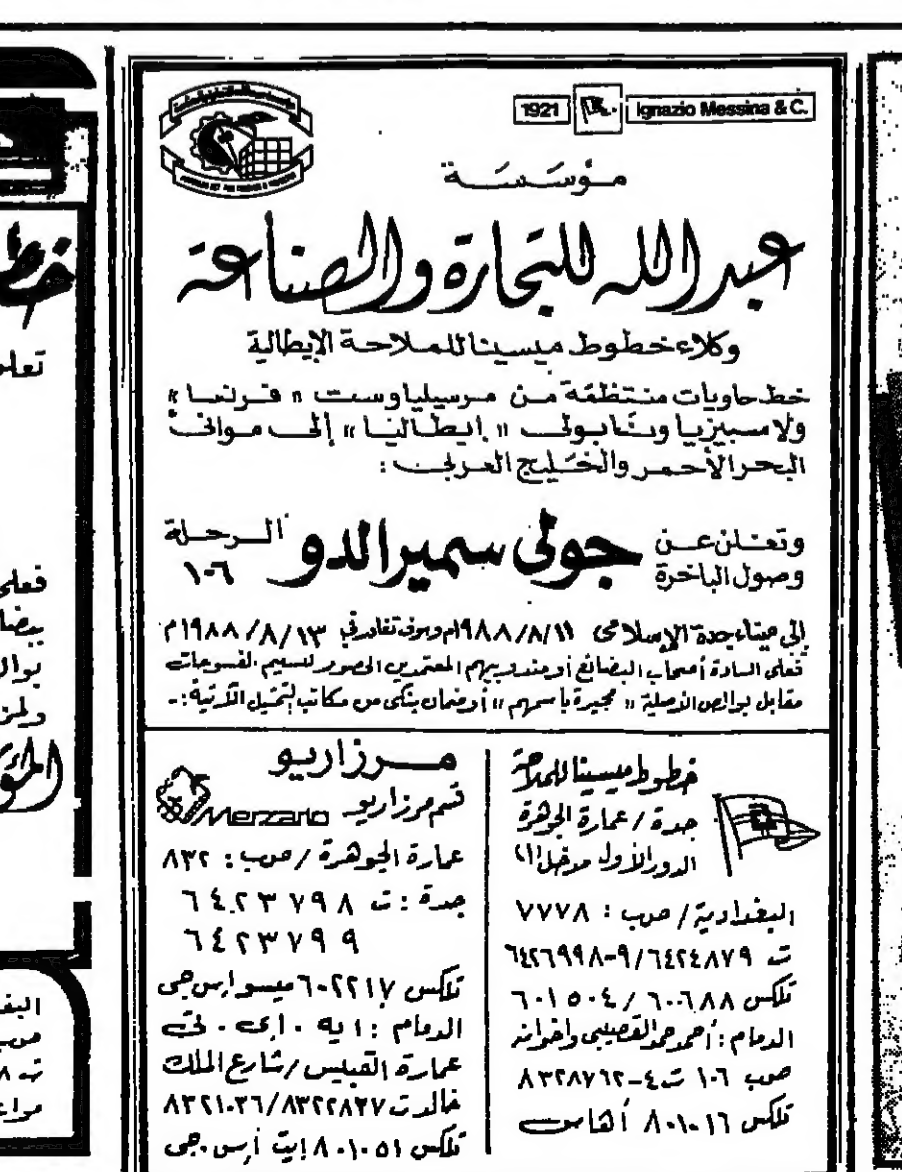 1921 Ignazio Messina & C.
مؤسسة
عبدالله للتجارة والصناعة
وكلاء خطوط ميسينا للملاحة الإيطالية
خط حاويات منتظمة من مرسيليا وست « فرنسا »
ولاسبيزيا ونابولي « إيطاليا » إلى موانئ
البحر الأحمر والخليج العربي :
وتعلن عن
وصول الباخرة
جولي سميرالدو
الرحلة
١٠٦
إلى ميناء جدة الإسلامي ١٩٨٨/٨/١١م وسوف تغادر في ١٩٨٨/٨/١٣م
فعلى السادة أصحاب البضائع أو مندوبيهم المعتمدين الحضور لتسليم الفسوحات
مقابل بوالص الأصلية « مجيرة باسمهم » أو ضمان بنكي من مكاتب التمثيل الآتية :-
خطوط ميسينا للملاحة
جدة / عمارة الجوهرة
الدور الأول مدخل (١)
البغدادية / صب : ٧٧٧٨
ت ٦٤٢٤٨٧٩/٩-٦٤٢٦٩٩٨
تلكس ٦٠٠٦٨٨ / ٦٠١٥٠٤
الدمام : أحمد حمد القصيبي واخوانه
صب ١٠٦ ت ٤-٨٣٢٨٧٦٢
تلكس ٨٠١٠١٦ أهاب
مرزاريو
قسم مرزاريو Merzario
عمارة الجوهرة / صب : ٨٣٢
جدة : ت ٦٤٢٣٧٩٨
٦٤٢٣٧٩٩
تلكس ٦٠٢٢١٧ ميسو إس جي
الدمام : ايه . اى . تي
عمارة القبليس / شارع الملك
خالد ت ٨٣٢٢٨٢٧/٨٣٢١٠٢٦
تلكس ٨٠١٠٥١ إيت أس . جي
خط
تعلن
فعلى
بوال
البغد
صب